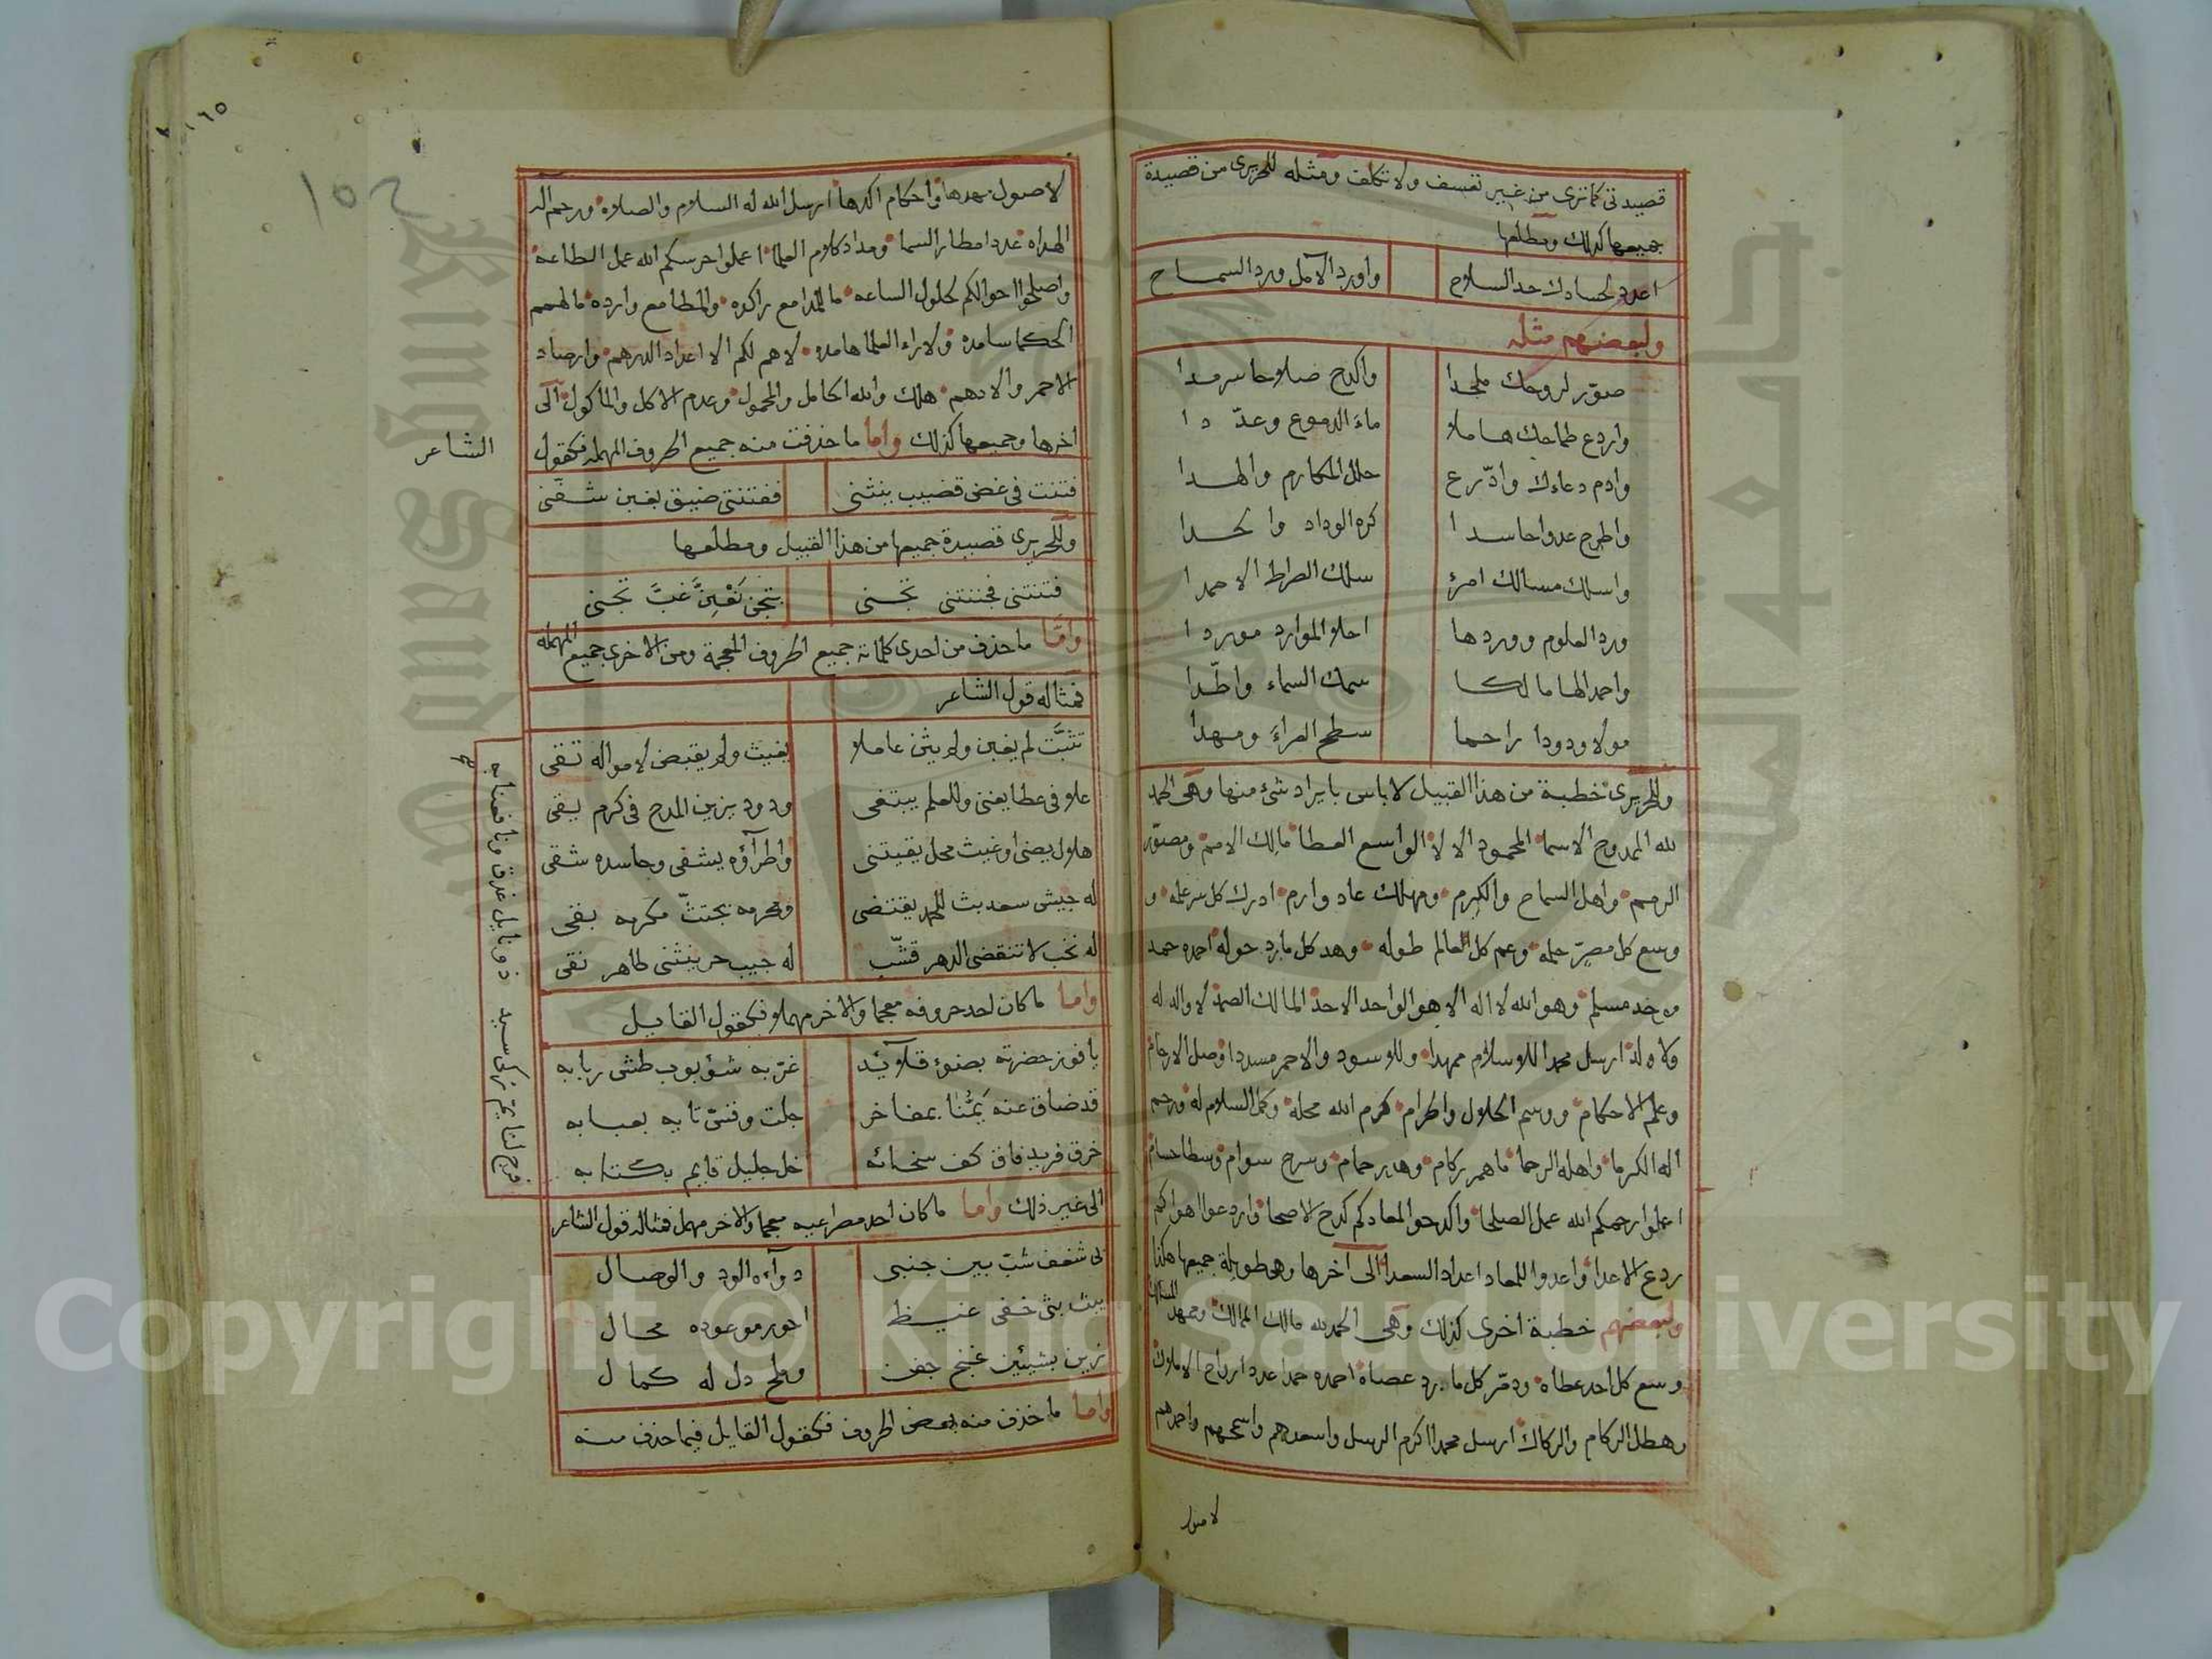 قصيدتى كما ترى من غير تعسف ولا تكلف ومثله للحريرى من قصيدة
جميعها كذلك ومطلعها
اعدد لحسادك حد السلاح واورد الآمل ورد السماح
ولبعضهم مثله
صوّر لروحك ملحدا واكدح صلاحا سرمدا
واردع طماحك هاملا ماء الدموع وعدّدا
وادم دعاءك وادّرع حلل المكارم والهدا
واطرح عدوا حاسدا كره الوداد والحدا
واسلك مسالك امرئ سلك الصراط الاحمدا
ورد العلوم ووردها احلا الموارد موردا
واحمد الها مالكا سمك السماء واطّدا
مولا ودودا راحما سطح العراء ومهدا
وللحريرى خطبة من هذا القبيل لا باس بايراد شئ منها وهى الحمد
لله الممدوح الاسما المحمود الالا الواسع العطا مالك الامم ومصوّر
الرمم واهل السماح والكرم ومهلك عاد وارم ادرك كل سر علمه و
وسع كل مصرّ حلمه وعم كل العالم طوله وهد كل مارد حوله احمده حمد
موحد مسلم وهو الله لا اله الا هو الواحد الاحد المالك الصمد لا والد له
ولا ولد ارسل محمدا للاسلام ممهدا وللاسود والاحمر مسددا وصل الارحام
وعلم الاحكام ووسم الحلال والحرام كرم الله محله وكمل السلام له ورحم
اله الكرما واهله الرحما ما همر ركام وهدر حمام وسرح سوام وسطا حسام
اعملوا رحمكم الله عمل الصلحا واكدحوا لمعادكم كدح الاصحا واردعوا اهواكم
ردع الاعدا واعدوا للمعاد اعداد السعدا الى آخرها وهى طويلة جميعها هكذا
ولبعضهم خطبة اخرى كذلك وهى الحمد لله مالك الممالك وممهد المسالك
وسع كل احد عطاه ودمّر كل مارد عصاه احمده حمدا عدد ارواح الاملاك
وهطل الركام والركاك ارسل محمدا اكرم الرسل واسعدهم واسمحهم واحمدهم
لاصول
لاصول مهدها واحكام اكدها ارسل الله له السلام والصلاه ورحم آله
الهداه عدد امطار السما ومداد كلام العلما اعملوا حرسكم الله عمل الطاعه
واصلحوا احوالكم لحلول الساعه ما للمدامع راكده والمطامع وارده ما لهمم
الحكما سامده ولاراء العلما هامده لا هم لكم الا اعداد الدرهم وارصاد
الاحمر والادهم هلك والله الحامل والمحمول وعدم الاكل والماكول الى
اخرها وجميعها كذلك واما ما حذفت منه جميع الحروف المهملة فكقول
الشاعر
فتنت فى غض قضيب ينثنى ففتنتى ضيق بغبن شفنى
وللحريرى قصيدة جميعها من هذا القبيل ومطلعها
فتنتنى فجننتنى تجنى بتجن يفتن غبّ تجنى
وامّا ما حذف من احدى كلماته جميع الحروف المعجمة ومن الاخرى جميع المهملة
فمثاله قول الشاعر
تثبّت لم يغبن ولم يثن عاملا يغيث ولم يقبض لامواله تقى
علا فى عطا يغنى وللعلم يبتغى ودود يزين المدح فى كرم بقى
هلال يضئ او غيث محل يقيتنى واطراؤه يشفى وحاسده شقى
له جيش سعد بث للحمد يقتضى ومحرمه يجتثّ مكرمه بقى
له نخب لا تنقضى الدهر قشّب له جيب حر ينثنى طاهر نقى
واما ما كان احد حروفه معجما والاخر مهملا فكقول القايل
يا فوز حضرته بضوء قلائد غرّ به شؤبوب طش ربابه
قد ضاق عنه بمفاخر جلت وقنىّ تابه بعبابه
خرق فريد فاق كف سخائه خل جليل قايم بكتابه
الى غير ذلك واما ما كان احد مصراعيه معجما والاخر مهمل فمثاله قول الشاعر
لى شغف شبّ بين جنبى دواءه الود والوصال
يبث بثى خفى غيظ احور موعوده محال
زين بشيئين غنج جفن وملح دل له كمال
واما ما حذف منه بعض الحروف فكقول القايل فيما حذف منه
Copyright © King Saud University